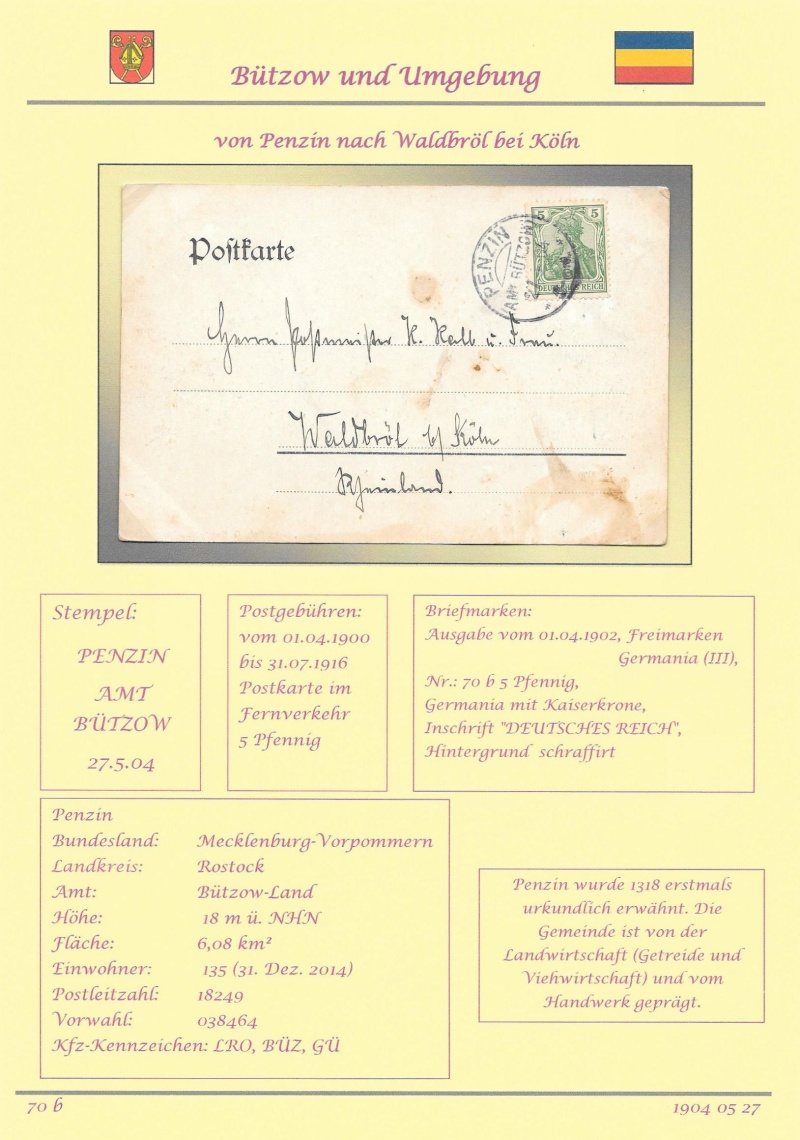 Bützow und Umgebung
von Penzin nach Waldbröl bei Köln
Postkarte
PENZIN
AMT BÜTZOW
5 5
DEUTSCHES REICH
Herrn Postmeister K. Kalb u. Frau.
Waldbröl b/ Köln
Rheinland.
Stempel:
PENZIN
AMT
BÜTZOW
27.5.04
Postgebühren:
vom 01.04.1900
bis 31.07.1916
Postkarte im
Fernverkehr
5 Pfennig
Briefmarken:
Ausgabe vom 01.04.1902, Freimarken
Germania (III),
Nr.: 70 b 5 Pfennig,
Germania mit Kaiserkrone,
Inschrift "DEUTSCHES REICH",
Hintergrund schraffirt
Penzin
Bundesland: Mecklenburg-Vorpommern
Landkreis: Rostock
Amt: Bützow-Land
Höhe: 18 m ü. NHN
Fläche: 6,08 km²
Einwohner: 135 (31. Dez. 2014)
Postleitzahl: 18249
Vorwahl: 038464
Kfz-Kennzeichen: LRO, BÜZ, GÜ
Penzin wurde 1318 erstmals
urkundlich erwähnt. Die
Gemeinde ist von der
Landwirtschaft (Getreide und
Viehwirtschaft) und vom
Handwerk geprägt.
70 b
1904 05 27